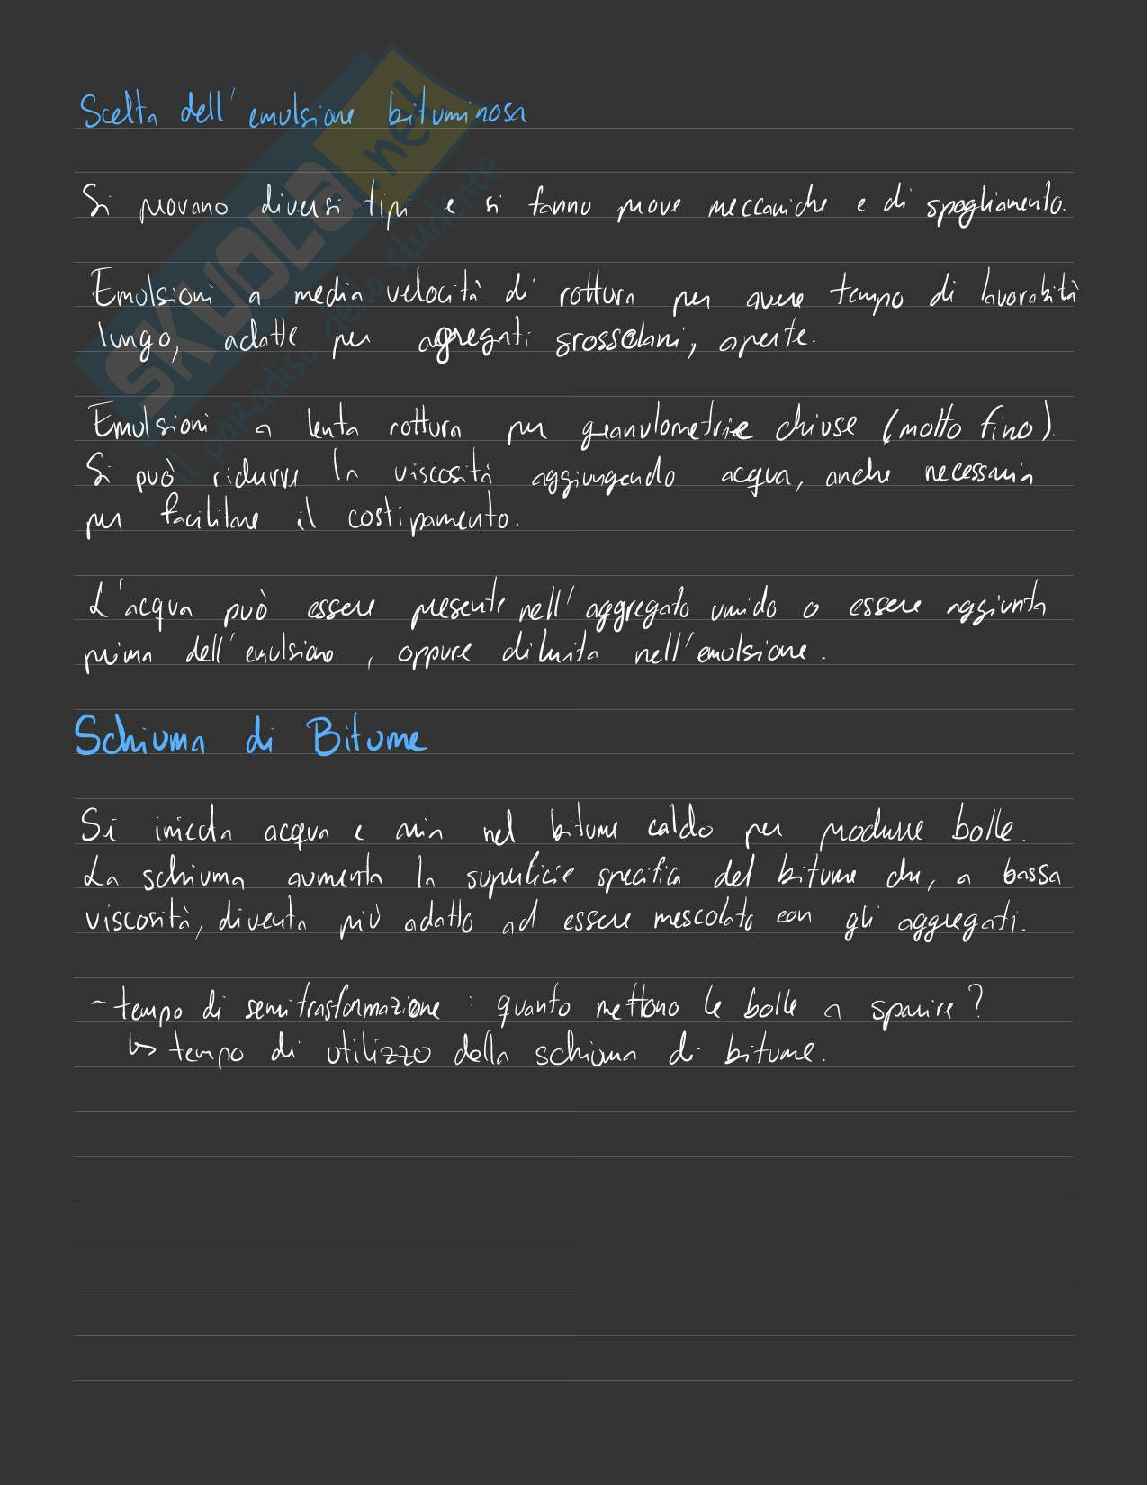 Scelta dell'emulsione bituminosa
Si provano diversi tipi e si fanno prove meccaniche e di spogliamento.
Emulsioni a media velocità di rottura per avere tempo di lavorabilità
lungo, adatte per aggregati grossolani, aperte.
Emulsioni a lenta rottura per granulometrie chiuse (molto fino).
Si può ridurre la viscosità aggiungendo acqua, anche necessaria
per facilitare il costipamento.
L'acqua può essere presente nell'aggregato umido o essere aggiunta
prima dell'emulsione, oppure diluita nell'emulsione.
Schiuma di Bitume
Si inietta acqua e aria nel bitume caldo per produrre bolle.
La schiuma aumenta la superficie specifica del bitume che, a bassa
viscosità, diventa più adatto ad essere mescolato con gli aggregati.
- tempo di semitrasformazione : quanto mettono le bolle a sparire?
↳ tempo di utilizzo della schiuma di bitume.
SKUOLA.net
il paradiso dello studente